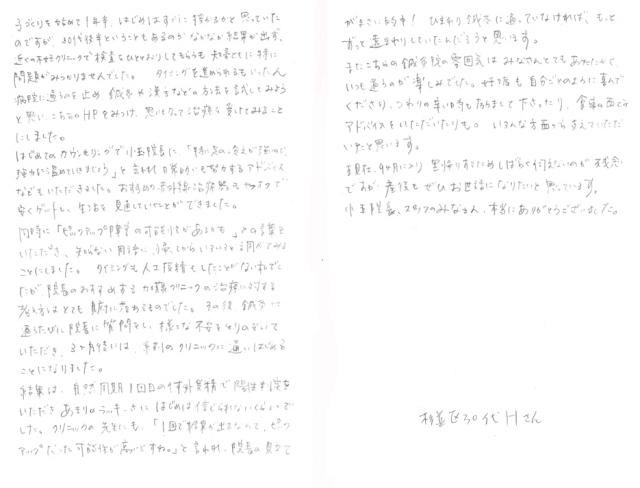 子づくりを始めて1年半、はじめはすぐに授かるかと思っていた
のですが、30代後半ということもあるのかなかなか結果が出ず、
近くの不妊クリニックで検査をひととおりしてもらうも夫婦ともに特に
問題がみつかりませんでした。 タイミングを進められるもいったん
病院に通うのを止め 鍼灸や漢方などの方法を試してみよう
と思い、こちらのHPをみつけ、思い切って治療を受けてみること
にしました。
はじめてのカウンセリングで小玉院長に、「特に足の冷えが強いので、
強力に温めていきましょう」と言われ 日常的にも努力するアドバイス
などもいただきました。おすすめの赤外線治療器もヤフオクで
安くゲットし、生活を見直していくことができました。
同時に「ピックアップ障害の可能性があるかも」との言葉を
いただき、知らない用語に
ことにしました。 タイミングも人工授精もしたことがないわたしでし
たが 院長のおすすめする加藤クリニックの治療に対する
考え方はとても 腑に落ちるものでした。その後 鍼灸に
通うたびに院長に質問をし、様々な不安をとりのぞいて
いただき、3ヶ月後には、系列のクリニックに通いはじめる
ことになりました。
結果は、自然周期1回目の体外受精で陽性判定を
いただき あまりのラッキーさに はじめは信じられないくらいで
した。クリニックの先生にも、「1回で結果が出るなんて、ピック
アップだった可能性が高いですね。」と言われ、院長の見立て
がまさに的中! ひまわり鍼灸に通っていなければ、もっと
ずっと遠まわりしていたんだろうと思います。
またこちらの鍼灸院の雰囲気は みなさんとてもあたたかく、
いつも通うのが楽しみでした。妊娠も自分ごとのように喜んで
くださり、つわりの辛い時もはげまして下さったり、食事の面でも
アドバイスをいただいたりも。いろんな方面から支えていただ
いたと思います。
現在、9ヶ月に入り 里帰りするためしばらく伺えないのが残念
ですが、産後もぜひお世話になりたいと思っています。
小玉院長、スタッフのみなさん、本当にありがとうございました。
杉並区30代Hさん